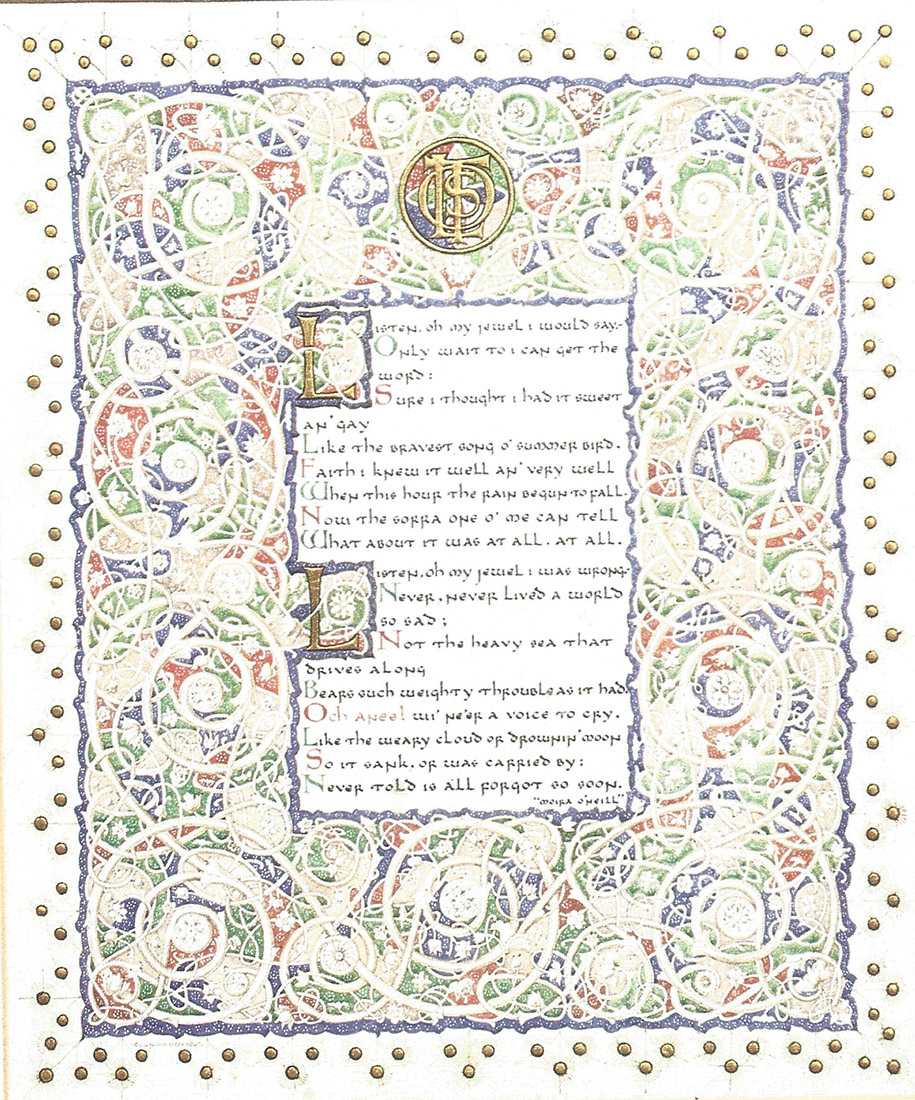 Listen, oh my jewel i would say,-
Only wait to i can get the
word:
Sure i thought i had it sweet
an' gay
Like the bravest song o' summer bird.
Faith i knew it well an' very well
When this hour the rain begun to fall.
Now the sorra one o' me can tell
What about it was at all. at all.
Listen, oh my jewel i was wrong.
Never, never lived a world
so sad;
Not the heavy sea that
drives along
Bears such weighty throubleas it had.
Och anee! wi' ne'er a voice to cry.
Like the weary cloud or drownin' moon
So it sank, or was carried by:
Never told is all forgot so soon.
"Moira O'Neill"